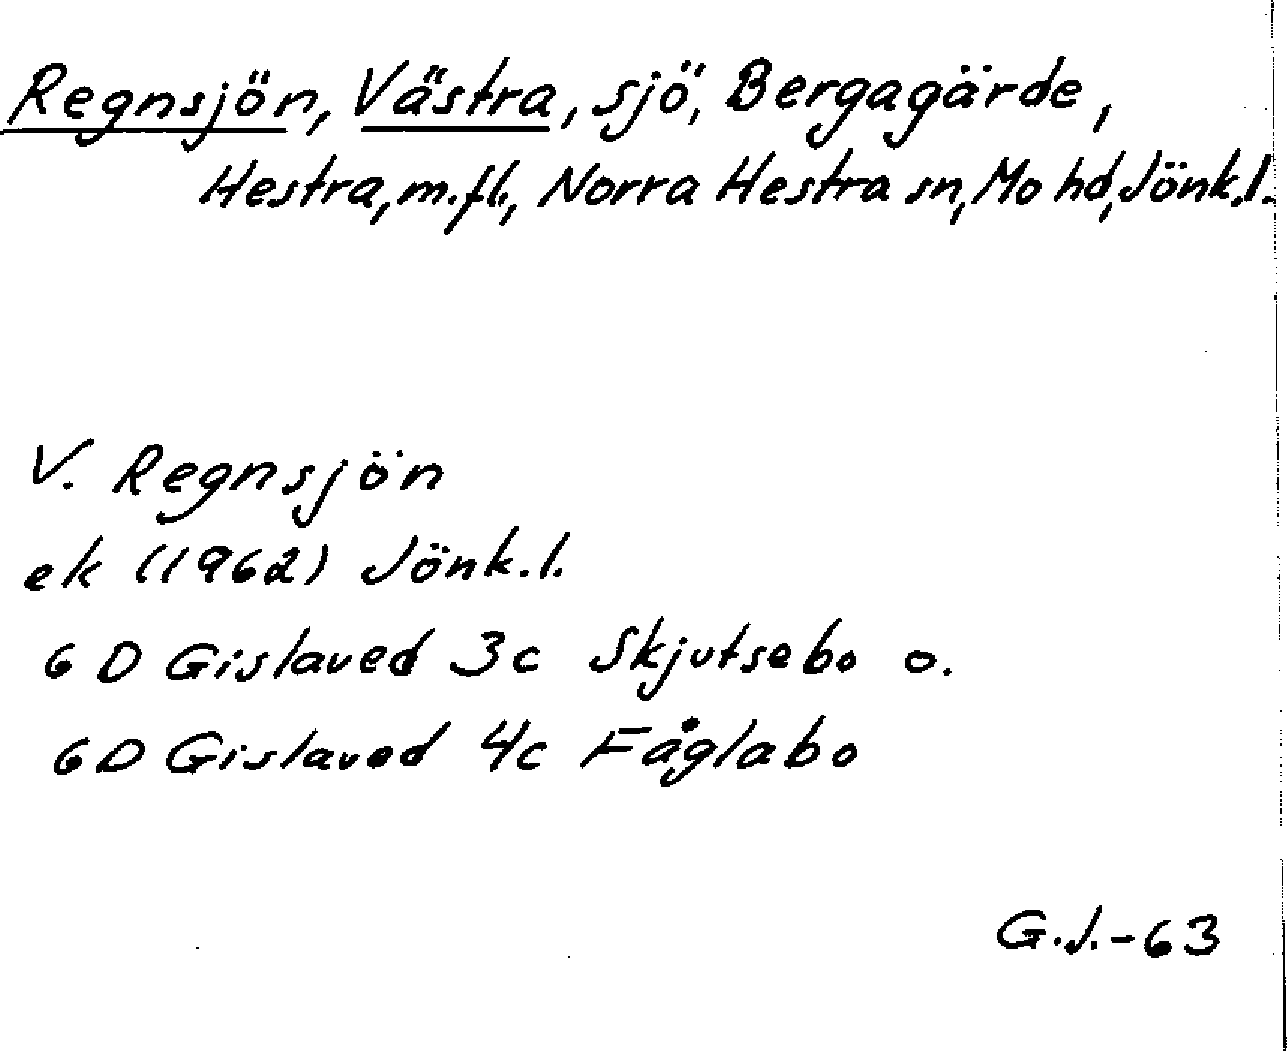 Regnsjön, Västra, sjö, Bergagärde,
Hestra, m.fl., Norra Hestra sn, Mo hd, Jönk.l.
V. Regnsjön
ek (1962) Jönk.l.
6 D Gislaved 3c Skjutsebo o.
6D Gislaved 4c Fåglabo
G.J.-63